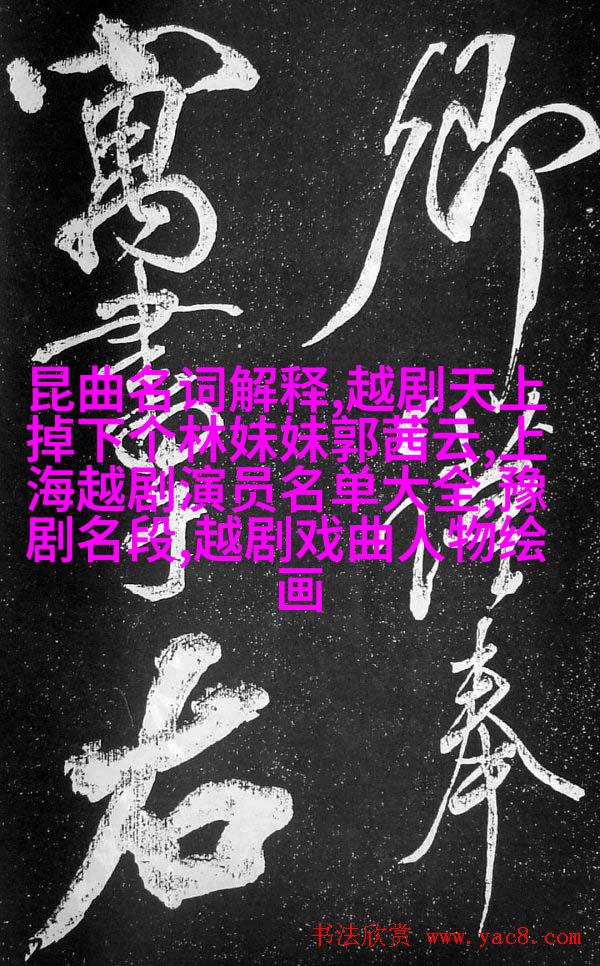 卿奉
寓書右
昆曲名词解释,越剧天上
掉下个林妹妹郭茜云,上
海越剧演员名单大全,豫
剧名段,越剧戏曲人物绘
画
书法欣赏 www.yac8.com